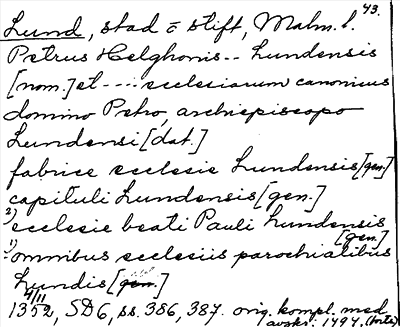 43.
Lund, stad o stift, Malm. l.
Petrus Helghonis -- lundensis
[nom.] et ---- ecclesiarum canonicus
domino Petro, archiepiscopo
Lundensi [dat.]
fabrice ecclesie Lundensis [gen.]
capituli Lundensis [gen.]
2) ecclesie beati Pauli Lundensis [gen.]
1) omnibus ecclesiis parochialibus
Lundis [gen.]
4/11 1352, SD6, ss. 386, 387. orig. kompl. med
avskr. 1494. (borte)